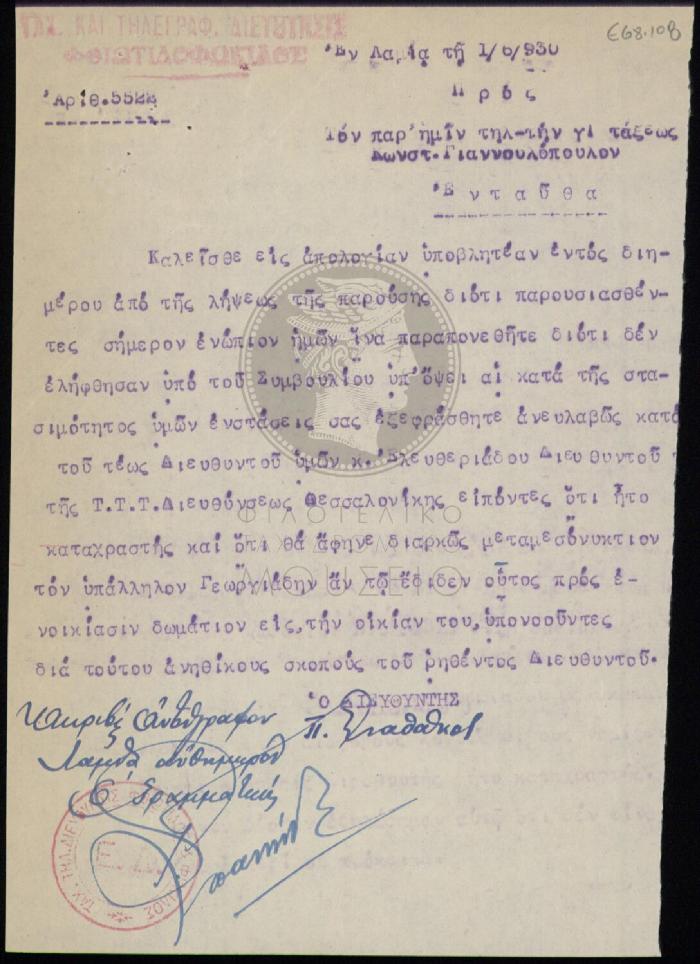 ΤΑΧ. ΚΑΙ ΤΗΛΕΓΡΑΦ. ΔΙΕΥΘΥΝΣΙΣ
ΦΘΙΩΤΙΔΟΦΩΚΙΔΟΣ
Ε68.10β
Ἐν Λαμία τῇ 1/6/930
Ἀριθ.5522
Π ρ ό ς
Τόν παρ'ἡμῖν τηλ-τήν γ! τάξεως
Κωνστ.Γιαννουλόπουλον
Ἐ ν τ α ῦ θ α
Καλεῖσθε εἰς ἀπολογίαν ὑποβλητέαν ἐντός διη-
μέρου ἀπό τῆς λήψεως τῆς παρούσης διότι παρουσιασθέν-
τες σήμερον ἐνώπιον ἡμῶν ἵνα παραπονεθῆτε διότι δέν
ἐλήφθησαν ὑπό τοῦ Συμβουλίου ὑπ'ὄψει αἱ κατά τῆς στα-
σιμότητος ὑμῶν ἐνστάσεις σας ἐξεφράσθητε ἀνευλαβῶς κατά
τοῦ τέως Διευθυντοῦ ὑμῶν κ. Ἐλευθεριάδου Διευθυντοῦ
τῆς Τ.Τ.Τ.Διευθύνσεως Θεσσαλονίκης εἰπόντες ὅτι ἦτο
καταχραστής καί ὅτι θά ἄφηνε διαρκῶς μεταμεσόνυκτιον
τόν ὑπάλληλον Γεωργιάδην ἄν τῷ ἔδιδεν οὗτος πρός ἐ-
νοικίασιν δωμάτιον εἰς τήν οἰκίαν του, ὑπονοοῦντες
διά τούτου ἀνηθίκους σκοπούς τοῦ ρηθέντος Διευθυντοῦ.
Ὁ ΔΙΕΥΘΥΝΤΗΣ
Ἀκριβές Ἀντίγραφον
Π.
Λαμία αὐθημερόν
Ὁ Γραμματεύς
ΦΙΛΟΤΕΛΙΚΟ
ΜΟΥΣΕΙΟ